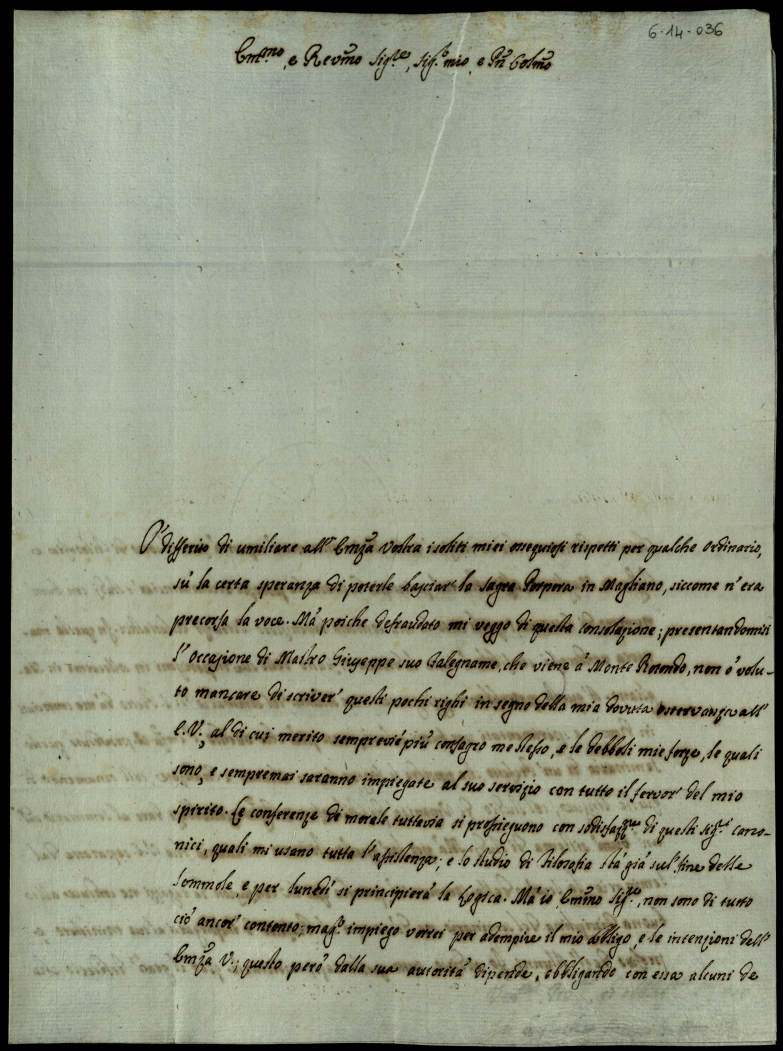 6-14-036
Em.mo, e Reυmo Sig.re, Sig.r mio, e Pñ Colmo
O' differito di umiliare all' Emza Vostra i soliti miei ossequiosi rispetti per qualche ordinario,
sù la certa speranza di poterle basciar' la Sagra Porpora in Magliano, siccome n'era
precorsa la voce. Mà poiche defraudato mi veggo di questa consolazione; presentandomisi
l'occasione di Mastro Giuseppe suo Falegname, che viene à Monte Rotondo, non ò volu-
to mancare di scriver' questi pochi righi in segno della mia dovuta osservanza all'
E.V., al di cui merito sempreviépiù consagro me stesso, e le debboli mie forze, le quali
sono, e sempremai saranno impiegate al suo servizio con tutto il fervor' del mio
spirito. Le conferenze di morale tuttavia si prosieguono con sodisfazz.ne di questi Sig.ri cano-
nici, quali mi usano tutta l'assistenza; e lo studio di Filosofia stà già sul' fine delle
Sommole, e per lunedì si principierà la Logica. Mà io, Emiño Sig.re, non sono di tutto
ciò ancor' contento; mag.r impiego vorrei per adempire il mio obbligo, e le intenzioni dell'
Emza V.; questo però dalla sua autorità dipende, obbligando con essa alcuni de